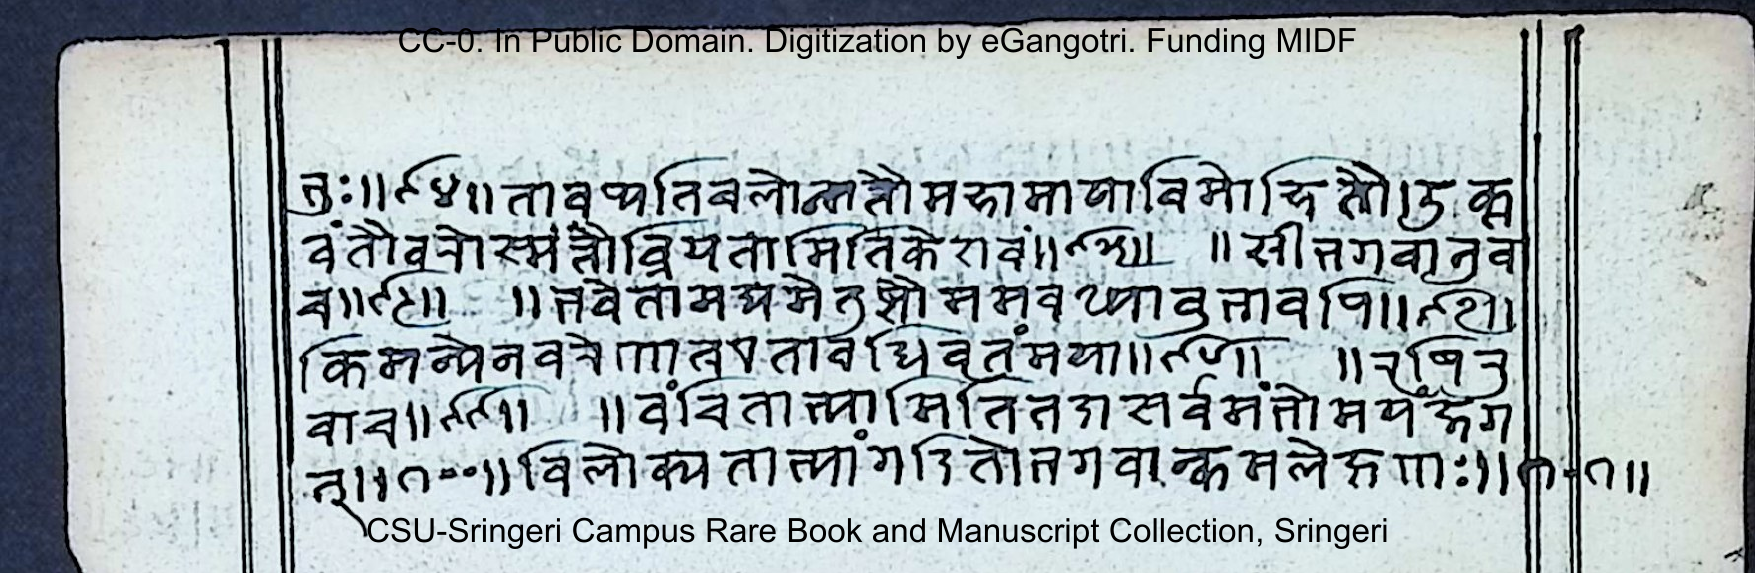 CC-0. In Public Domain. Digitization by eGangotri. Funding MIDF
भुः॥९४॥तावप्यतिबलोन्मत्तौमहामायाविमोहितौ।उक्त
वंतौवरोस्मत्तौव्रियतामितिकेशवं॥९५॥ ॥श्रीभगवानुव
च॥९६॥ ॥भवेतामद्यमेतुष्टौममवध्यावुभावपि॥९७॥
किमन्येनवरेणात्रएतावद्धिवृतंमया॥९८॥ ॥ऋषिरु
वाच॥९९॥ ॥वंचिताभ्यामितितदासर्वमंभोमयंजग
त्॥१००॥विलोक्यताभ्यांगदितोभगवान्कमलेक्षणः॥१०१॥
CSU-Sringeri Campus Rare Book and Manuscript Collection, Sringeri